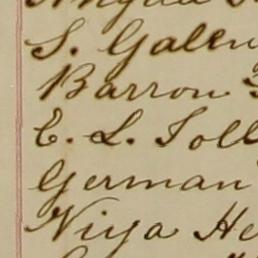 S. Galen
Barron
E. L. Toll
German
Niya He